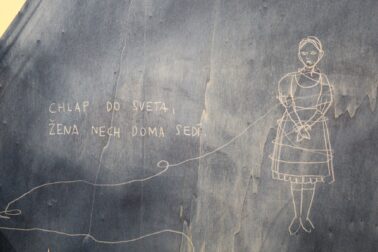 CHLAP DO SVETA,
ŽENA NECH DOMA SEDÍ